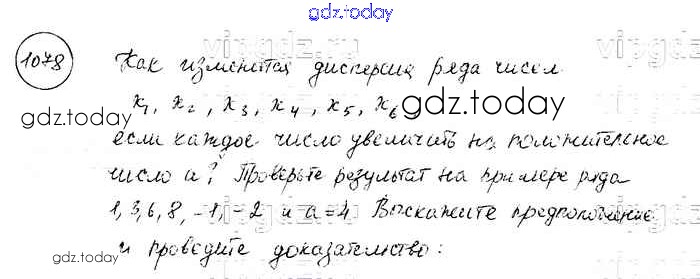 gdz.today
1078 Как изменится дисперсия ряда чисел
x1, x2, x3, x4, x5, x6
gdz.today gdz.today
если каждое число увеличить на положительное
число a? Проверьте результат на примере ряда
1, 3, 6, 8, -1, -2 и a=4 Выскажите предположение
и проведите доказательство:
gdz.today